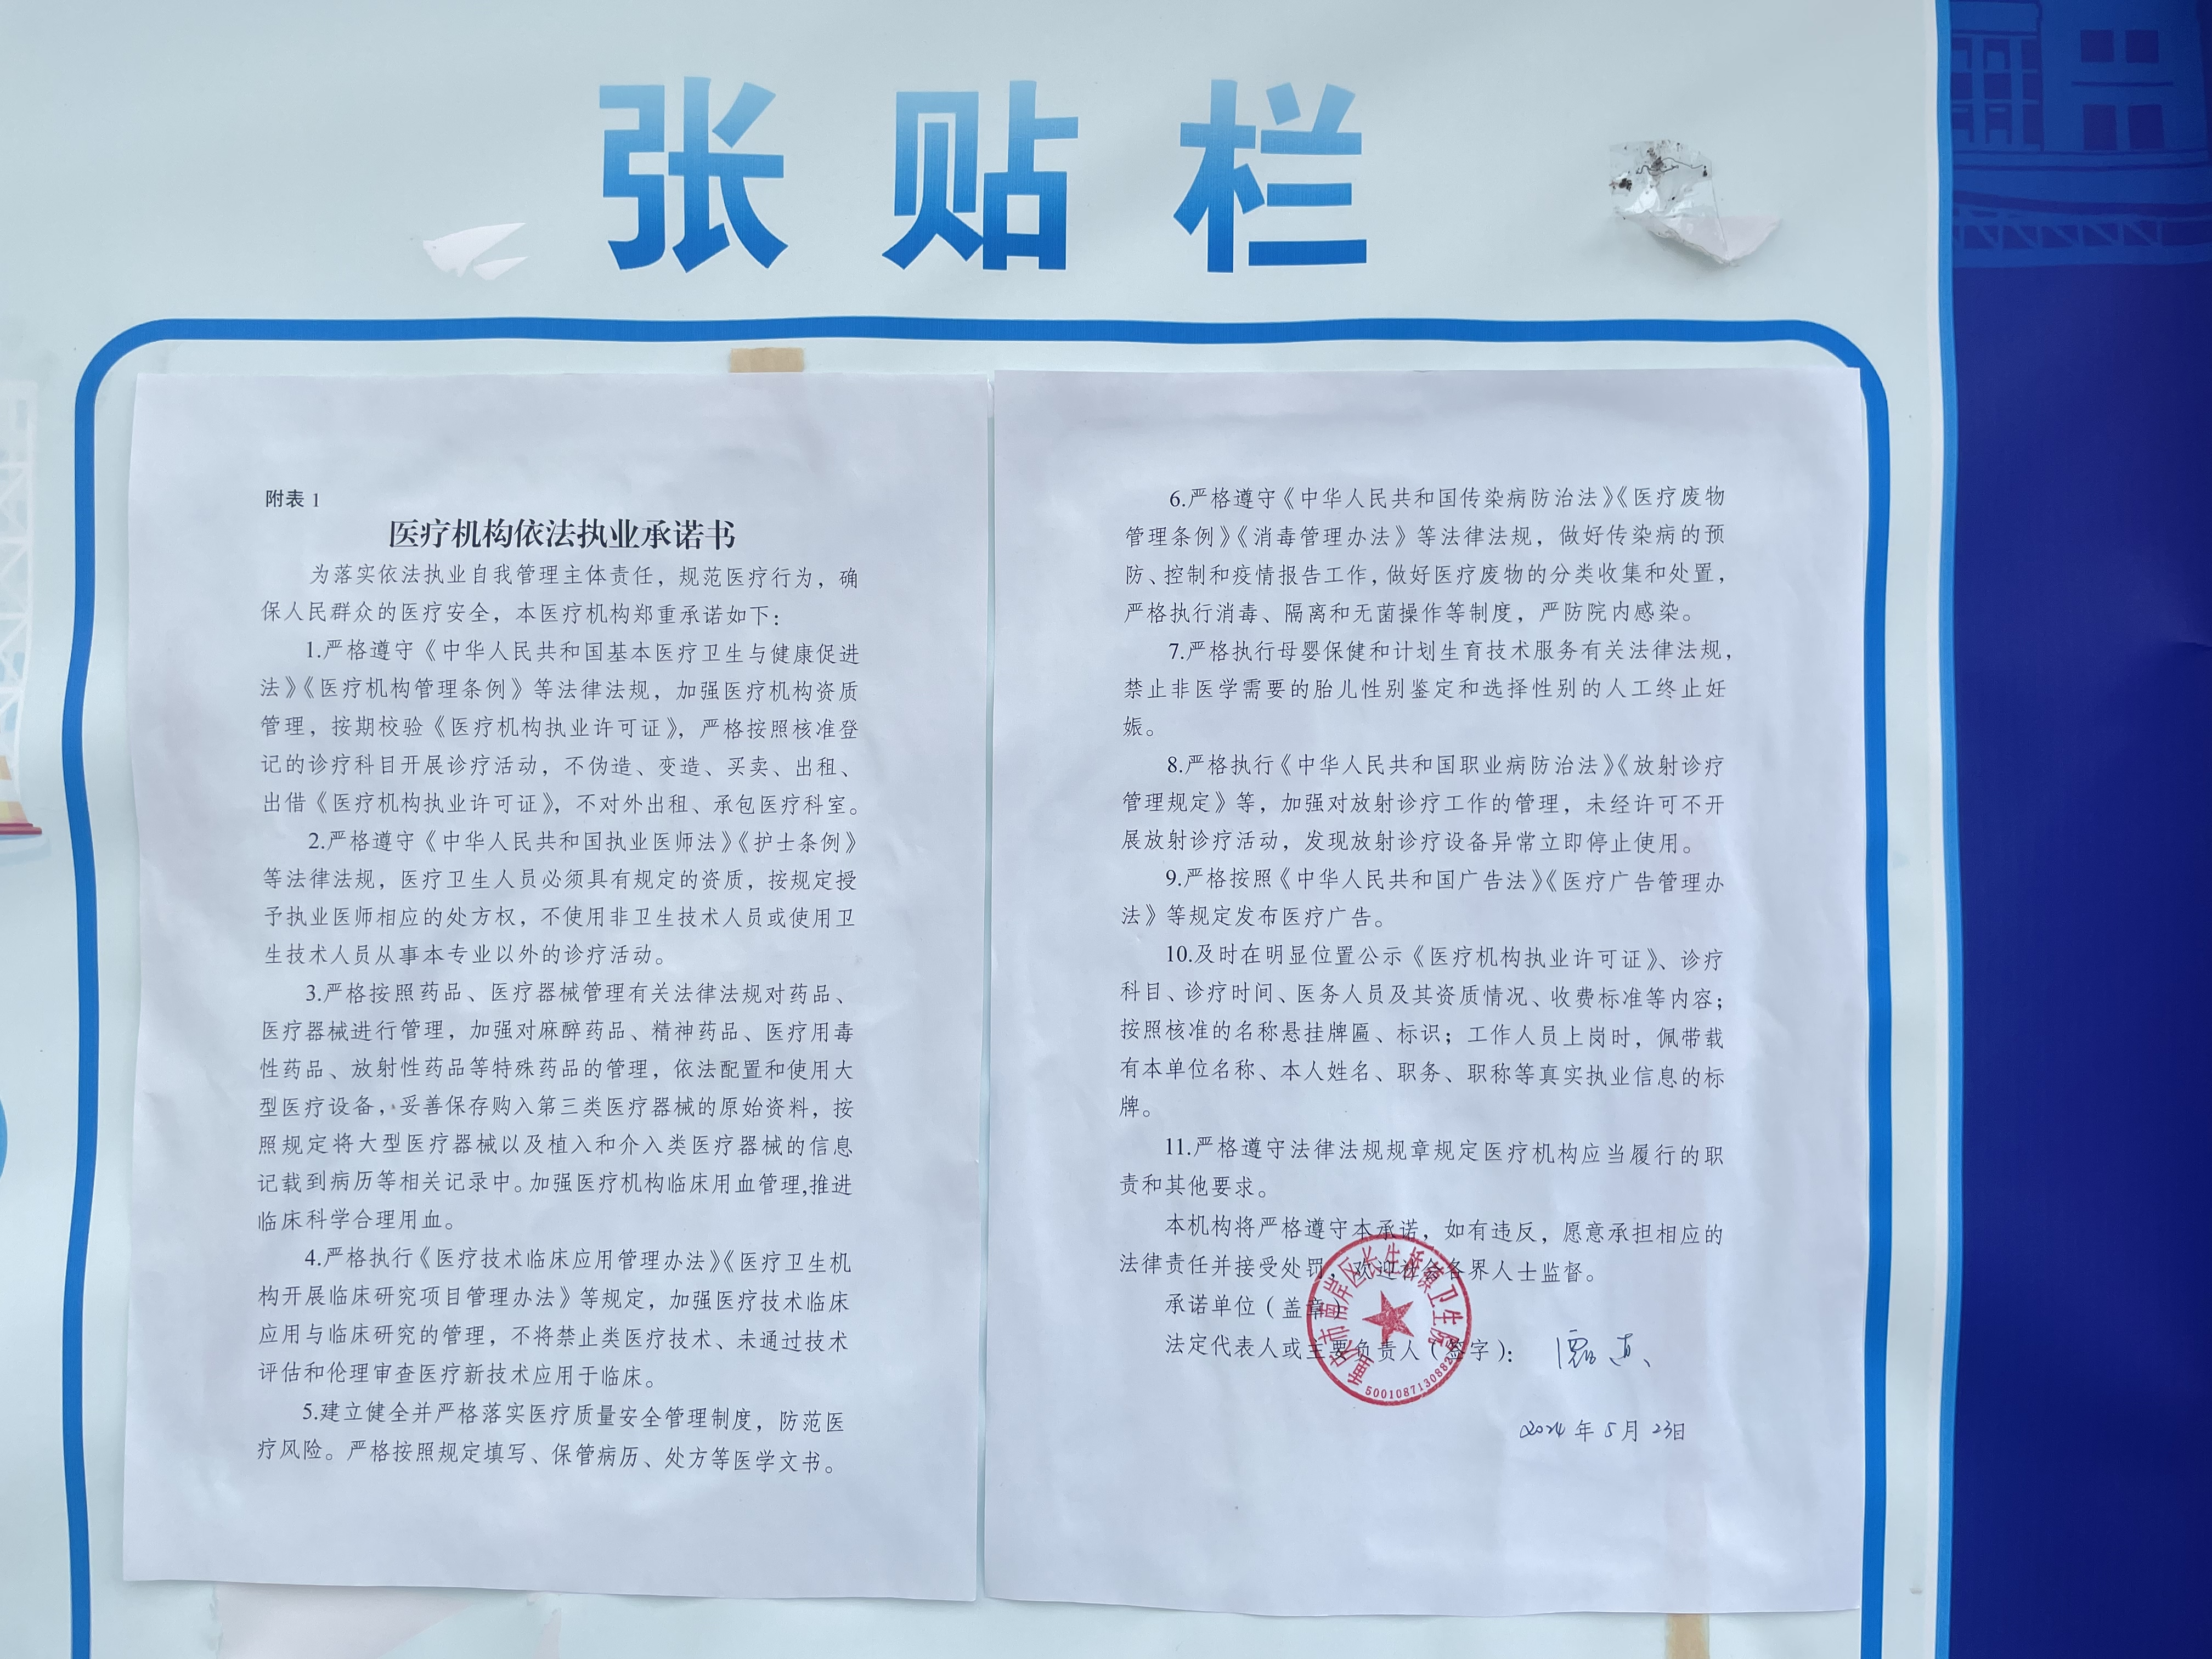 张贴栏
附表 1
医疗机构依法执业承诺书
为落实依法执业自我管理主体责任，规范医疗行为，确
保人民群众的医疗安全，本医疗机构郑重承诺如下：
1.严格遵守《中华人民共和国基本医疗卫生与健康促进
法》《医疗机构管理条例》等法律法规，加强医疗机构资质
管理，按期校验《医疗机构执业许可证》，严格按照核准登
记的诊疗科目开展诊疗活动，不伪造、变造、买卖、出租、
出借《医疗机构执业许可证》，不对外出租、承包医疗科室。
2.严格遵守《中华人民共和国执业医师法》《护士条例》
等法律法规，医疗卫生人员必须具有规定的资质，按规定授
予执业医师相应的处方权，不使用非卫生技术人员或使用卫
生技术人员从事本专业以外的诊疗活动。
3.严格按照药品、医疗器械管理有关法律法规对药品、
医疗器械进行管理，加强对麻醉药品、精神药品、医疗用毒
性药品、放射性药品等特殊药品的管理，依法配置和使用大
型医疗设备，妥善保存购入第三类医疗器械的原始资料，按
照规定将大型医疗器械以及植入和介入类医疗器械的信息
记载到病历等相关记录中。加强医疗机构临床用血管理,推进
临床科学合理用血。
4.严格执行《医疗技术临床应用管理办法》《医疗卫生机
构开展临床研究项目管理办法》等规定，加强医疗技术临床
应用与临床研究的管理，不将禁止类医疗技术、未通过技术
评估和伦理审查医疗新技术应用于临床。
5.建立健全并严格落实医疗质量安全管理制度，防范医
疗风险。严格按照规定填写、保管病历、处方等医学文书。
6.严格遵守《中华人民共和国传染病防治法》《医疗废物
管理条例》《消毒管理办法》等法律法规，做好传染病的预
防、控制和疫情报告工作，做好医疗废物的分类收集和处置，
严格执行消毒、隔离和无菌操作等制度，严防院内感染。
7.严格执行母婴保健和计划生育技术服务有关法律法规，
禁止非医学需要的胎儿性别鉴定和选择性别的人工终止妊
娠。
8.严格执行《中华人民共和国职业病防治法》《放射诊疗
管理规定》等，加强对放射诊疗工作的管理，未经许可不开
展放射诊疗活动，发现放射诊疗设备异常立即停止使用。
9.严格按照《中华人民共和国广告法》《医疗广告管理办
法》等规定发布医疗广告。
10.及时在明显位置公示《医疗机构执业许可证》、诊疗
科目、诊疗时间、医务人员及其资质情况、收费标准等内容；
按照核准的名称悬挂牌匾、标识；工作人员上岗时，佩带载
有本单位名称、本人姓名、职务、职称等真实执业信息的标
牌。
11.严格遵守法律法规规章规定医疗机构应当履行的职
责和其他要求。
本机构将严格遵守本承诺，如有违反，愿意承担相应的
法律责任并接受处罚，欢迎社会各界人士监督。
承诺单位（盖章）
法定代表人或主要负责人（签字）：
重庆市南岸区长生桥镇卫生院
2024年5月23日